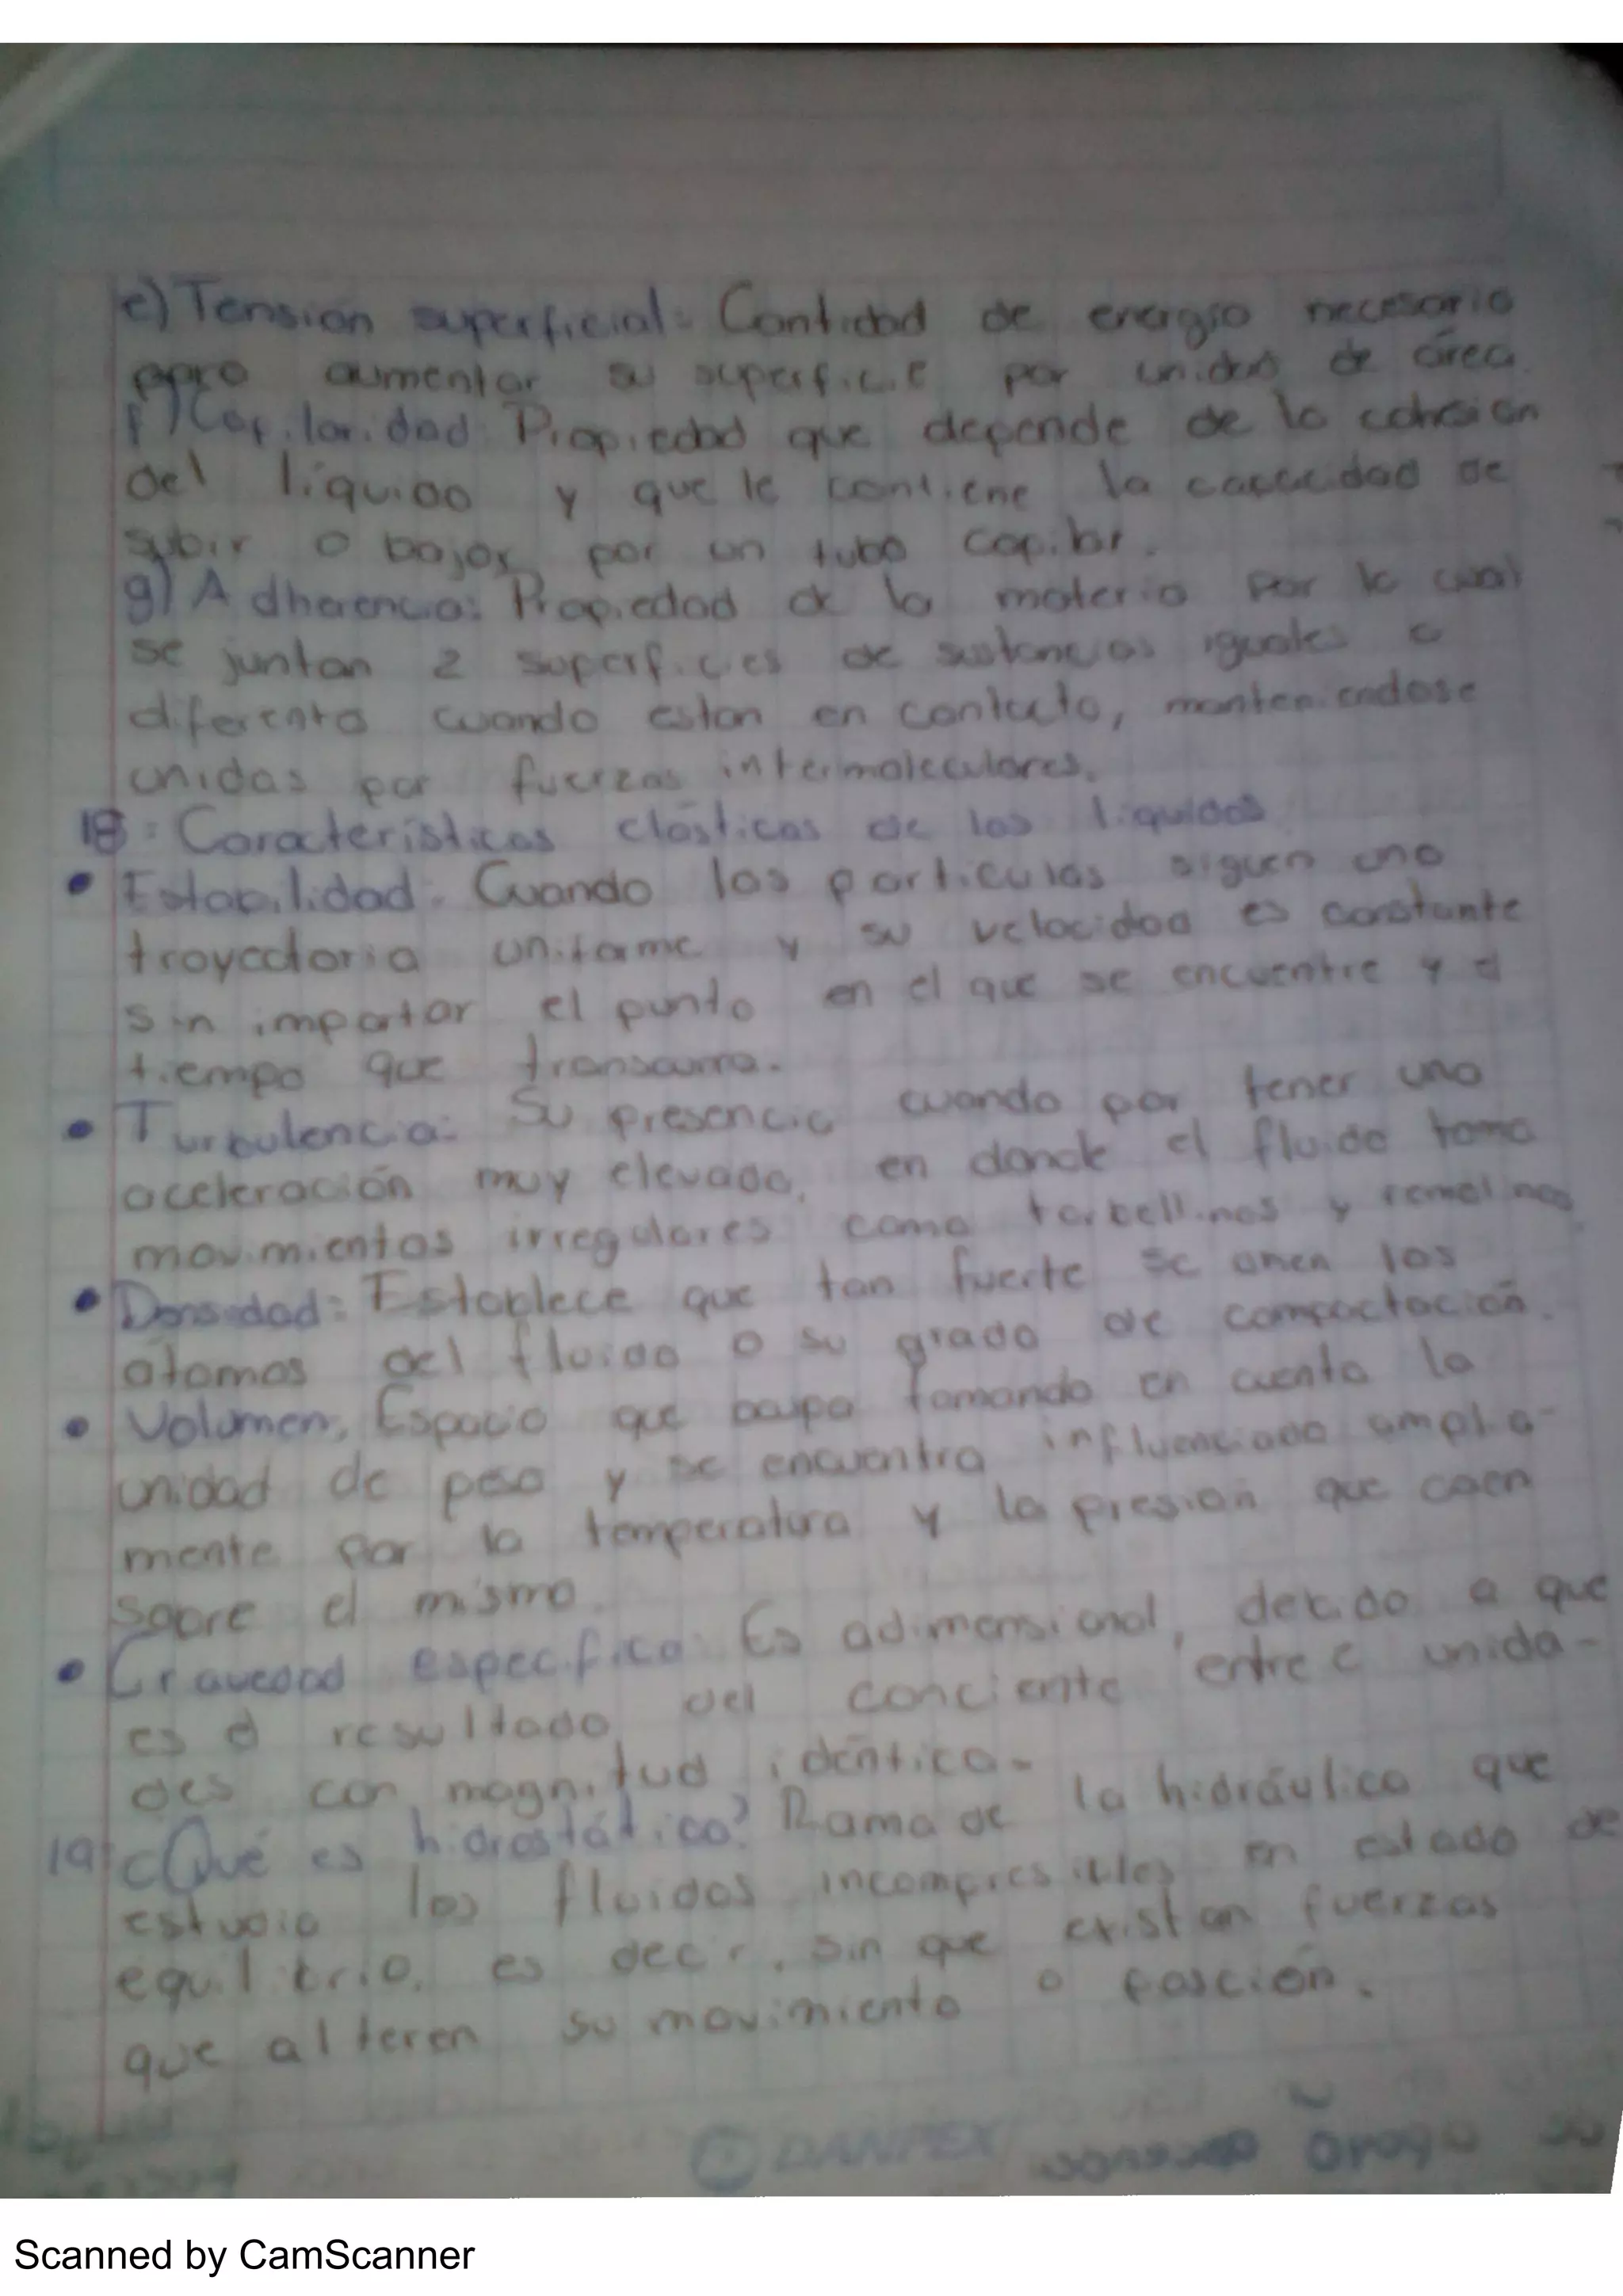 e) Tension superficial: Cantidad de energia necesaria
para aumentar su superficie por unidad de área.
f) Capilaridad: Propiedad que depende de la cohesion
del líquido y que le contiene la capacidad de
subir o bajar por un tubo capilar.
g) Adherencia: Propiedad de la materia por la cual
se juntan 2 superficies de sustancias iguales o
diferents cuando estan en contacto, manteniendose
unidas por fuerzas intermoleculares.
18: Características elásticas de los liquidos
• Estabilidad: Cuando las particulas siguen una
trayectoria uniforme y su velocidad es constante
sin importar el punto en el que se encuentre y el
tiempo que transcurra.
• Turbulencia: Su presencia cuando por tener una
aceleración muy elevada, en donde el fluido toma
movimientos irregulares como torbellinos y remolinos
• Densidad: Establece que tan fuerte se unen los
atomos del fluido o su grado de compactación.
• Volumen, Espacio que ocupa tomando en cuenta la
unidad de peso y se encuentra influenciado ampla-
mente por la temperatura y la presion que caen
sobre el mismo.
• Gravedad especifica: Es adimensional, debido a que
es el resultado del conciente entre unida-
des con magnitud identica.
19: ¿Qué es hidrostática? Rama de la hidráulica que
estudia los fluidos incompresibles en estado de
equilibrio, es decir, sin que existan fuerzas
que alteren su movimiento o posción.
DANPEX
Scanned by CamScanner